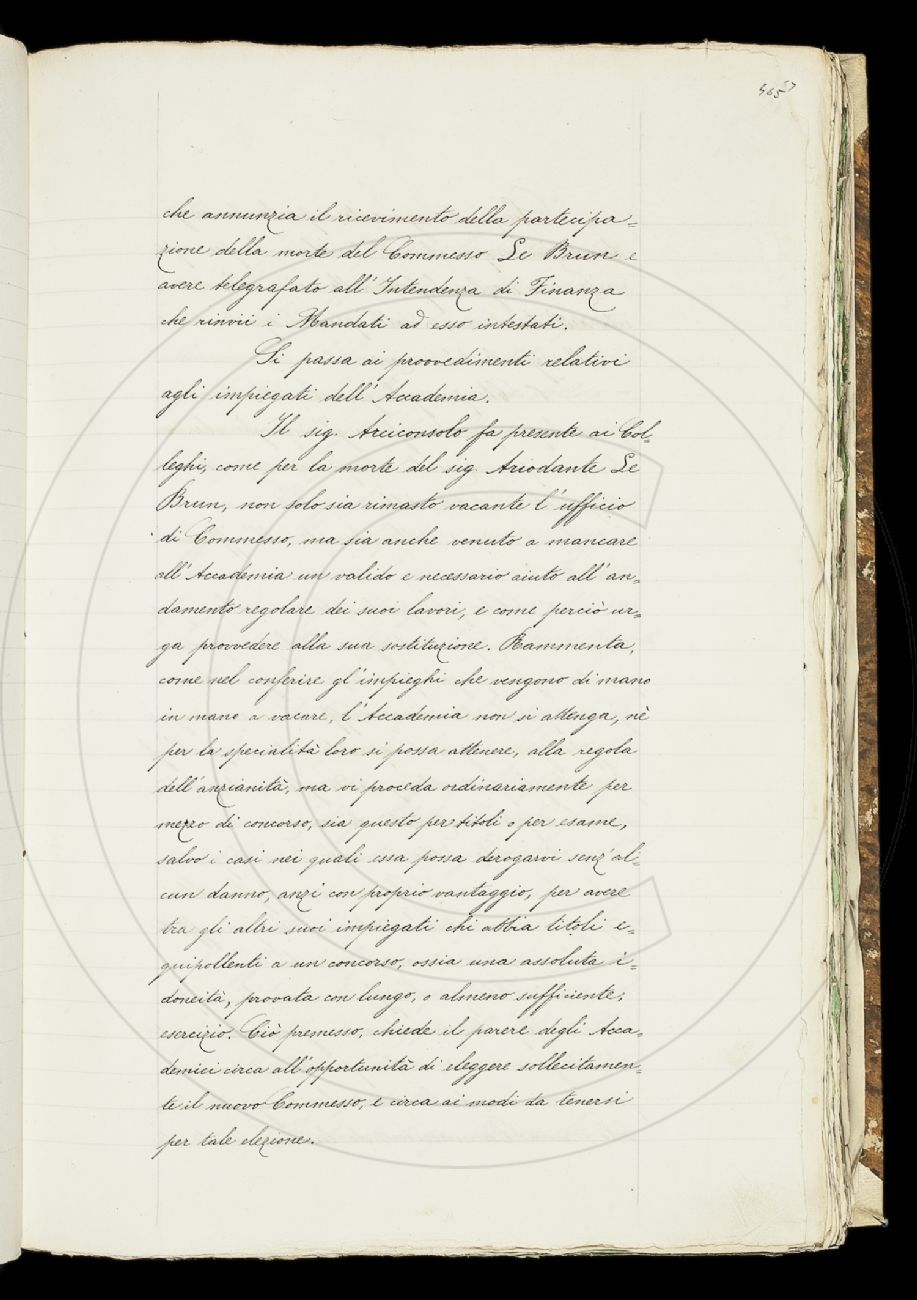 che annunzia il ricevimento della partecipa=
zione della morte del Commesso Le Brun e
avere telegrafato all'Intendenza di Finanza
che rinvii i Mandati ad esso intestati.
Si passa ai provvedimenti relativi
agli impiegati dell'Accademia.
Il sig. Arciconsolo fa presente ai Col=
leghi, come per la morte del sig. Ariodante Le
Brun, non solo sia rimasto vacante l'ufficio
di Commesso, ma sia anche venuto a mancare
all'Accademia un valido e necessario aiuto all'an=
damento regolare dei suoi lavori, e come perciò ur=
ga provvedere alla sua sostituzione. Rammenta,
come nel conferire gl'impieghi che vengono di mano
in mano a vacare, l'Accademia non si attenga, nè
per la specialità loro si possa attenere, alla regola
dell'anzianità, ma vi proceda ordinariamente per
mezzo di concorso, sia questo per titoli o per esame,
salvo i casi nei quali essa possa derogarvi senz'al=
cun danno, anzi con proprio vantaggio, per avere
tra gli altri suoi impiegati chi abbia titoli e=
quipollenti a un concorso, ossia una assoluta i=
doneità, provata con lungo, o almeno sufficiente,
esercizio. Ciò premesso, chiede il parere degli Acca=
demici circa all'opportunità di eleggere sollecitamen=
te il nuovo Commesso, e circa ai modi da tenersi
per tale elezione.